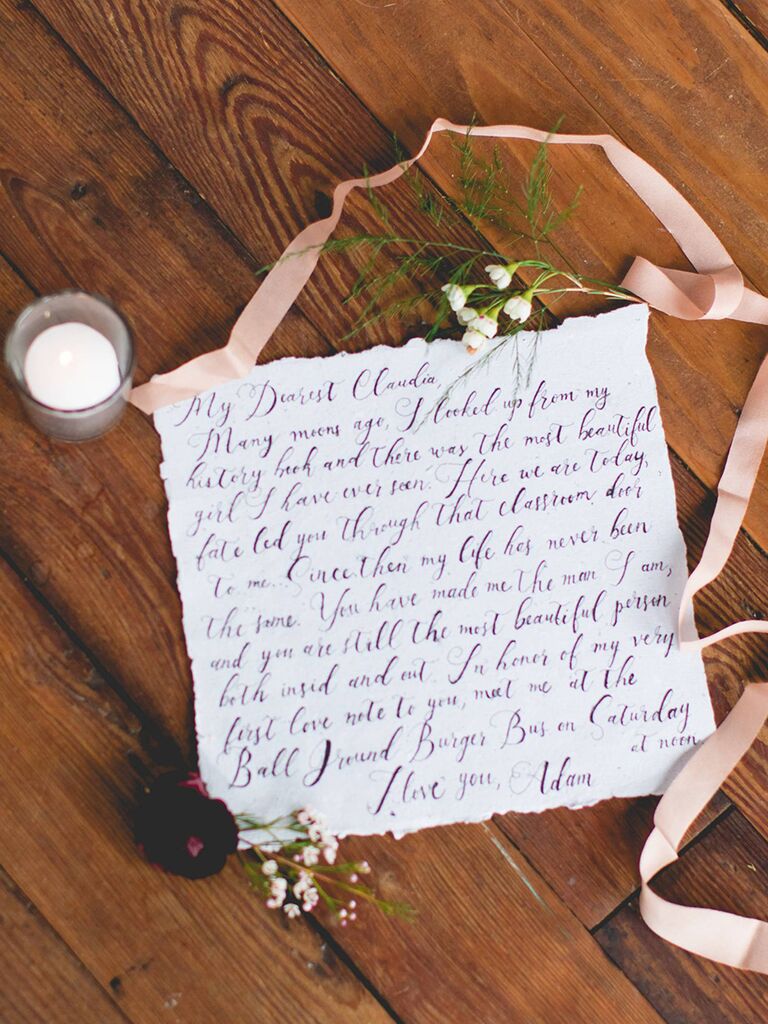 My Dearest Claudia,
Many moons ago, I looked up from my
history book and there was the most beautiful
girl I have ever seen. Here we are today,
fate led you through that classroom door
to me... Since then my life has never been
the same. You have made me the man I am,
and you are still the most beautiful person
both insid and out. In honor of my very
first love note to you, meet me at the
Ball Ground Burger Bus on Saturday
at noon.
I love you, Adam